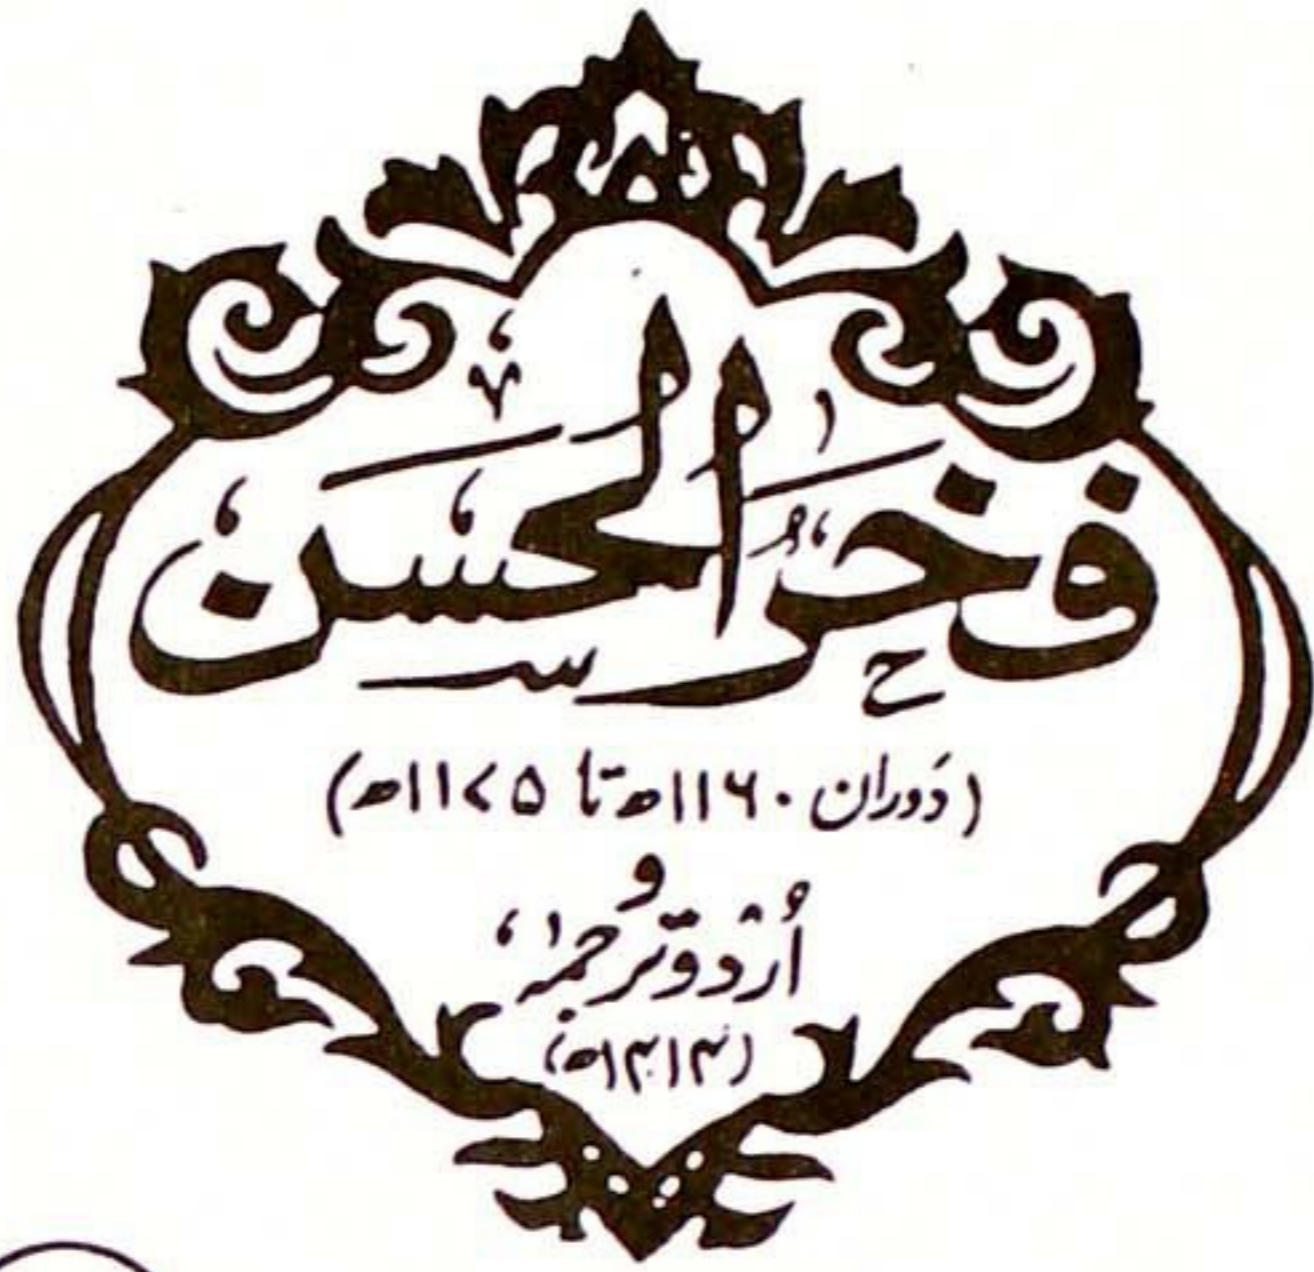 فخر الحسن
(دَوران ۱۱۶۰ھ تا ۱۱۷۵ھ)
و
اُردو ترجمہ
(۱۴۱۴ھ)